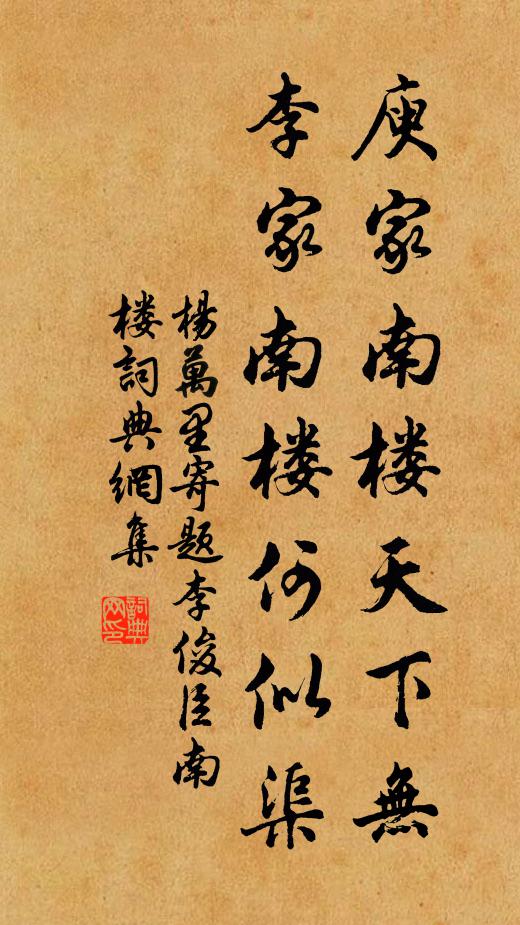 庾家南楼天下無
李家南楼何似渠
楊萬里寄題李俊臣南
楼詞典網集
詞典
网印